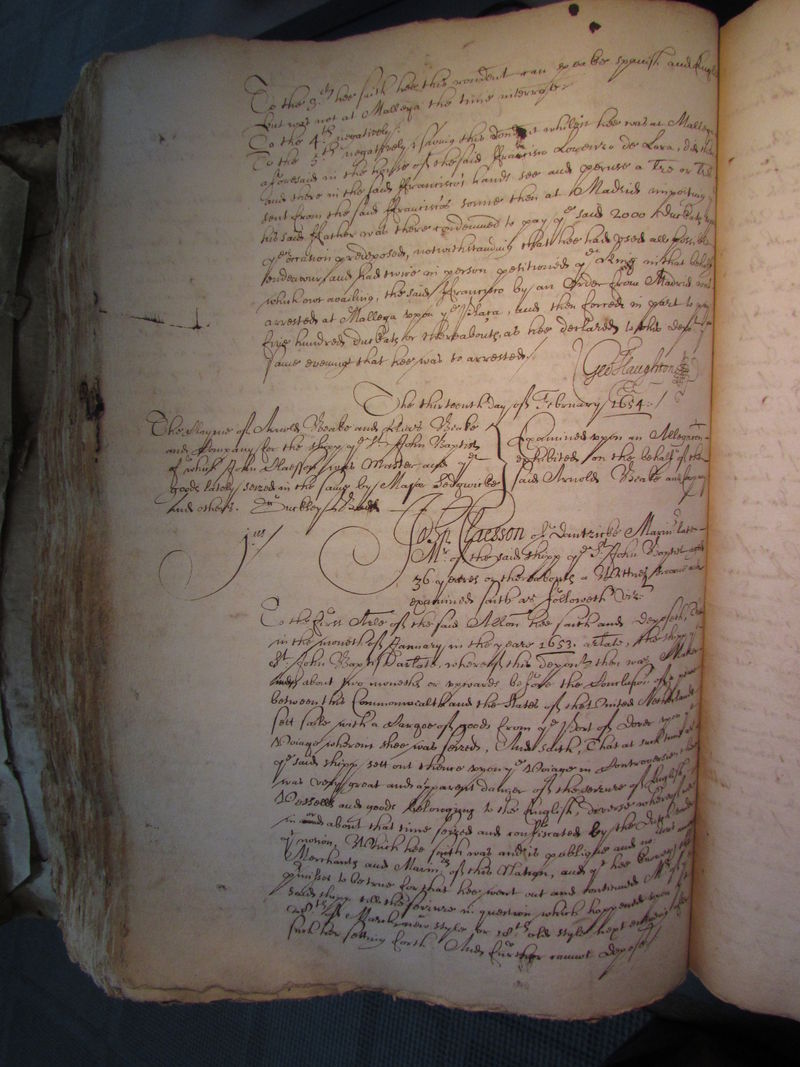 To the 3th hee saith hee this rendent can speake Spanish and
but was not at Mallega the time interrate
To the 4th negatively.
To the 5th negatively, saving this whilst hee was at
aforesaid in the house of the said ffrancisco Lowenzo de Lara, did
and there in the said ffrancisco's hands see and peruse a Tre or
sent from the said ffrancisco's sonne then at Madrid importing
his said ffather was there condemned to pay ye said 2000 duckats
ye occation predeposed, notwithstanding that hee had used all
endeavour, and had twice in person petitioned ye King in that
which not availing, the said ffrancisco by an order from Madrid was
arrested at Mallega upon ye Plaça, and then forced in part to pay
five hundred duckats or thereabouts, as hee declared to this
same evening that hee was so arrested./
Geo: Haughton
The thirteenth day of February 1654./
The Clayme of Arnold Beake and Beake
and Company for the shipp ye St John Baptist
of which John Claesson was Master and ye
goods lately seized in the same by Major Sedgwicke
and others.
Examined upon an Allegation
exhibited on the behalf of the
said Arnold Beake and
jus
Claesson of Dantzicke Marinr late
Mr of the said shipp ye St John Baptist aged
36 yeares or thereabouts a Witnes sworne and
examined saith as followeth vizt
To the first Arle of the said Allon hee saith and deposeth, That
in the moneth of January in the yeare 1653. arlate, the shipp
St. John Baptist arlate, whereof this deponent then was Master
about two moneths or upwards before the Conclusion of
betweene this Commonwealth and the States of the United Netherlands
sett saile with a Cargoe of goods from ye Port of Dover upon
Voiage wherein shee was seized, And saith, That at such time as
ye said shipp sett out thence upon ye Voiage in Controversie
was very great and apparent danger of the seizure of English
Vessells and goods belonging to the English, diverse whereof
in and about that time seized and confiscated by the Dutch
yt nation, Which hee saith was and is publique and
Merchants and Marinrs of this Nation, and yt hee knoweth the
premisses to be true for that hee went out and continued Mr of ye
said shipp till the seizure in question which happened upon
28th of March new style or 18th old style next ensuing
such her setting forth And further cannot depose/